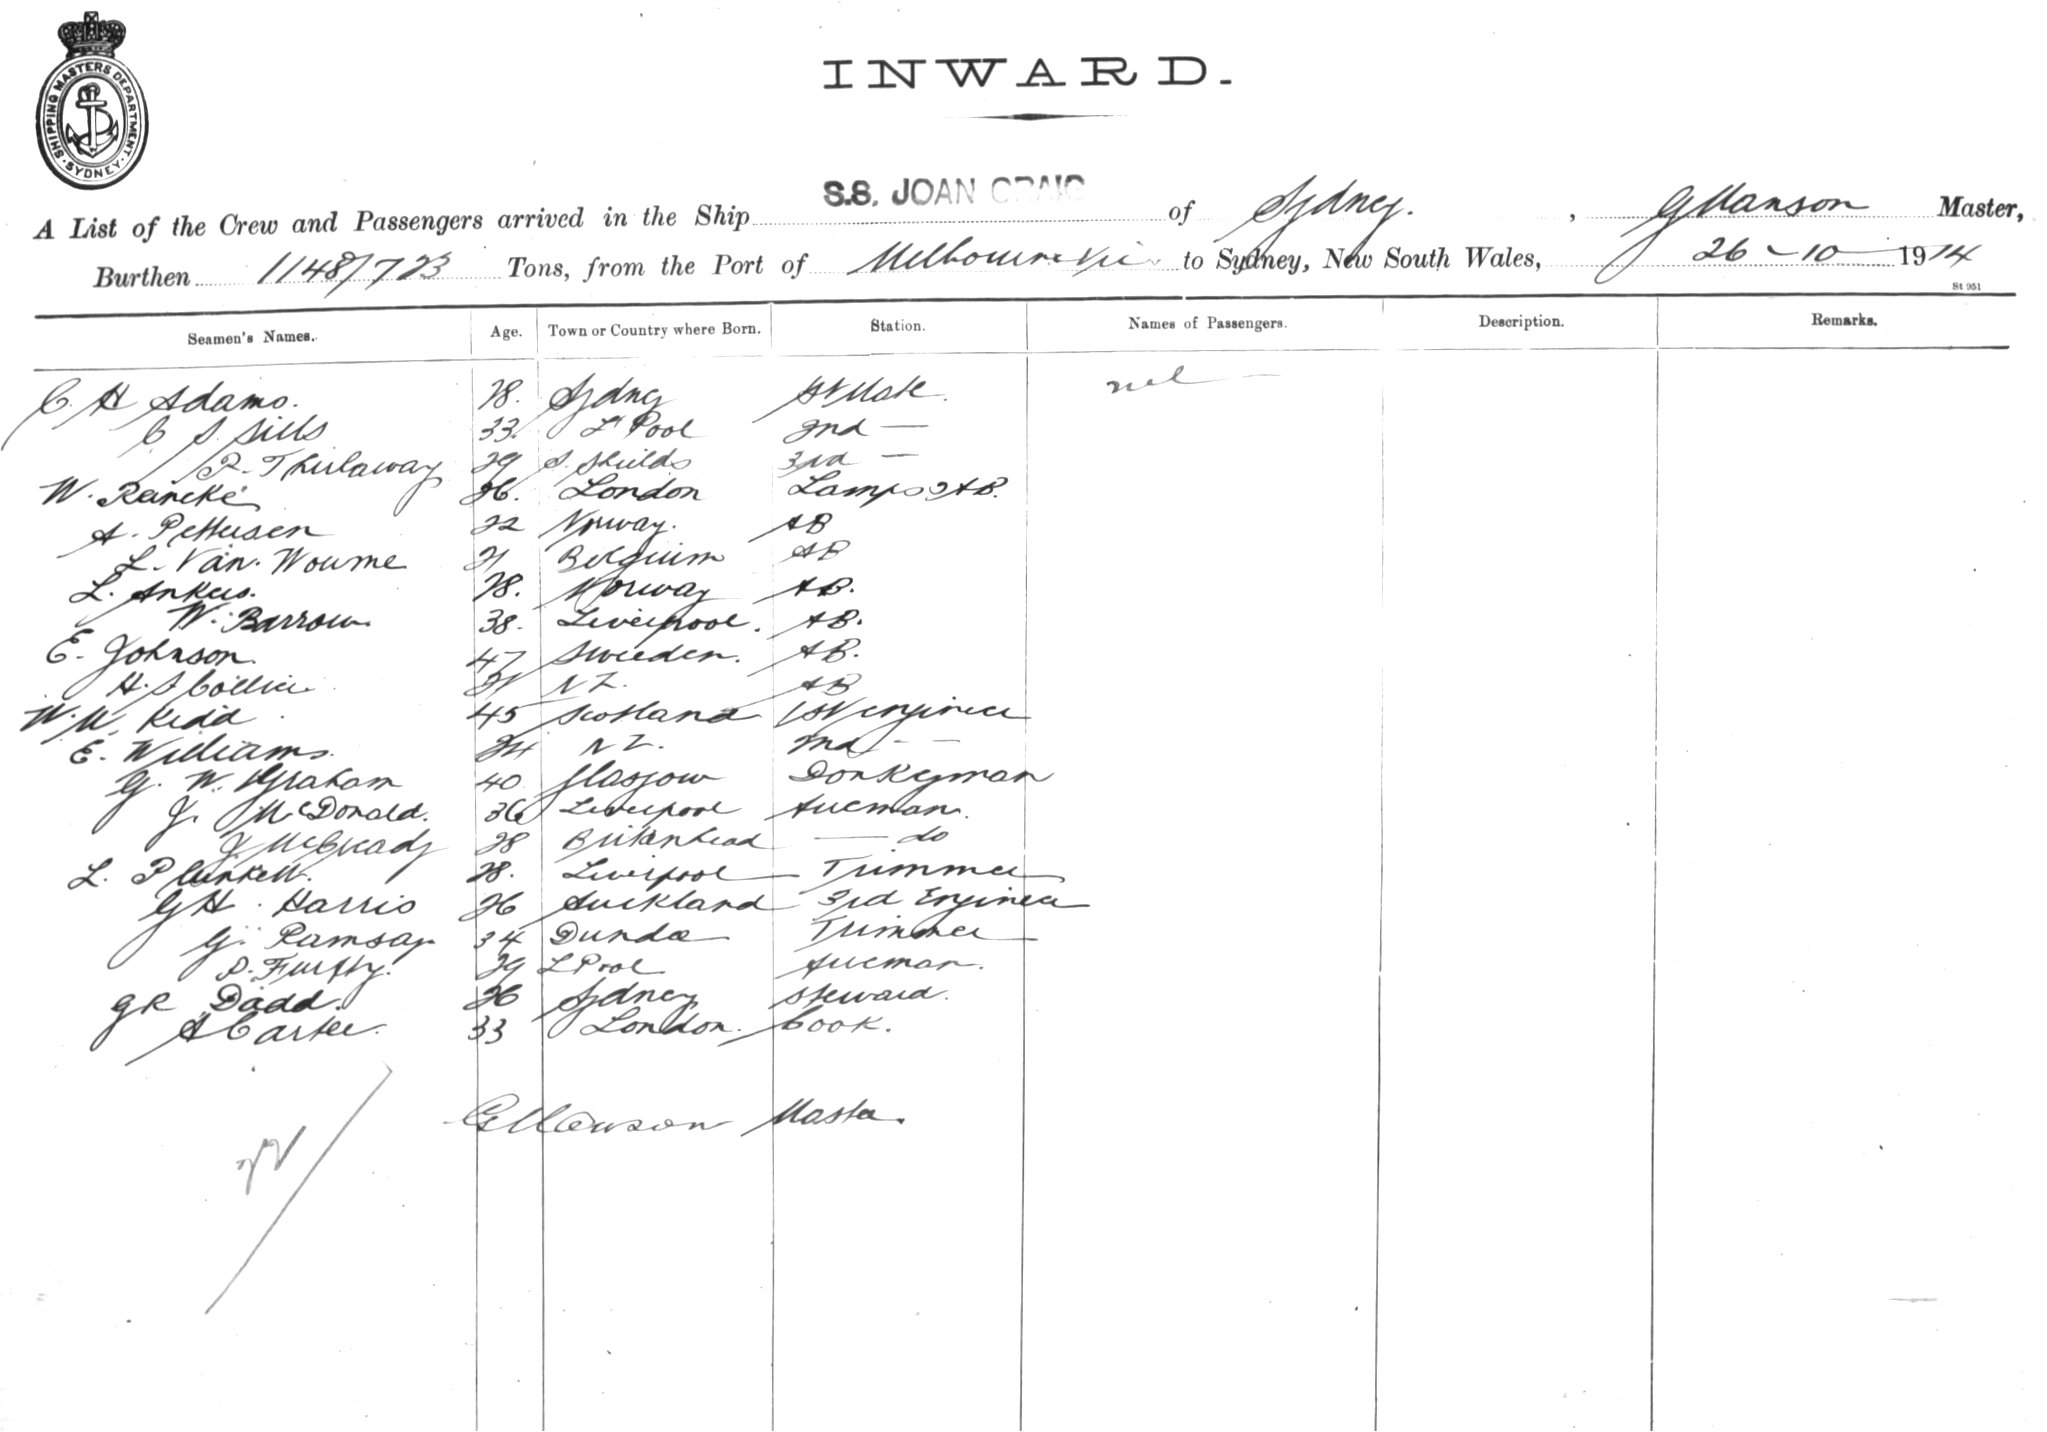 SHIPPING MASTERS DEPARTMENT
SYDNEY
INWARD.
A List of the Crew and Passengers arrived in the Ship S.S. JOAN CRAIG of Sydney. , G Manson Master,
Burthen 1148/723 Tons, from the Port of Melbourne Vic to Sydney, New South Wales, 26-10 1914
St 951
Seamen's Names. Age. Town or Country where Born. Station. Names of Passengers. Description. Remarks.
C. H Adams. 28. Sydney 1st Mate. nil —
C S. Sills 33. L'Pool 2nd —
29 S. Shields 3rd —
W. Reincke 26. London Lamps & AB.
A. Pettersen 22 Norway. AB
L. Van. Wourme 21 Belgium AB
L. Ankers. 28. Norway AB.
W. Barrow 38. Liverpool. AB.
E. Johnson. 47 Sweeden. AB.
H. S Collier 31 NZ. AB
W. M. Kidd. 45 Scotland 1st engineer
E. Williams. 24 NZ. 2nd - —
G. W. Graham 40 Glasgow Donkeyman
J. McDonald. 36 Liverpool Fireman.
J McGready 28 Birkenhead — do
L. Plunkett. 28. Liverpool Trimmer
G H. Harris 26 Auckland 3rd Engineer
G. Ramsay 34 Dundee Trimmer
29 L Pool Fireman.
G R Dadd. 26 Sydney Steward.
A Carter. 33 London. Cook.
G Manson Master.